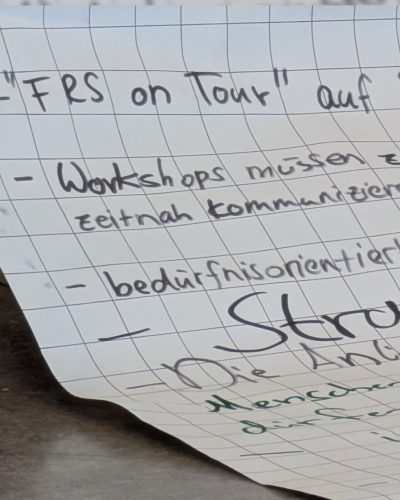 -"FRS on Tour" auf
- Workshops müssen z
zeitnah kommunizier
- bedürfnisorientiert
- Stru
- Die Anli
Menschen
dürfen
-